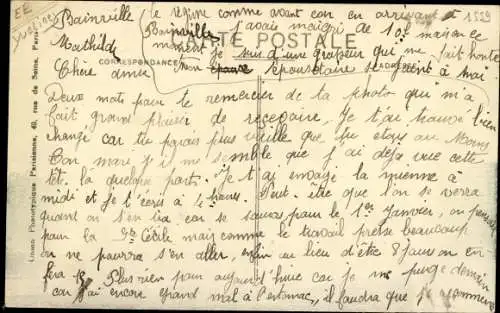 EE
Yvelines
1529
Bainville
Mathilde
Chère amie
le régime comme avant car en arrivant à
Bainville j'avais maigri de 10
moment je suis d'une grosseur qui me fait honte
CARTE POSTALE
CORRESPONDANCE
ADRESSE
Deux mots pour te remercier de ta photo qui m'a
fait grand plaisir de recevoir. Je t'ai trouvé bien
changé car tu parais plus vieille que tu étais au
Ton mari il me semble que j'ai déjà vue cette
tête là quelque part. Je t'ai envoyé la mienne à
midi et je t'écris à 4 heures. Peut être que l'on se verra
quand on s'en ira car se sera pour le 1er Janvier, on
pour la Ste Cécile mais comme le travail presse beaucoup
on ne pourra s'en aller, enfin au lieu d'être 8 jours on en
fera 15. Plus rien pour aujourd'hui car je me purge demain
car j'ai encore grand mal à l'estomac, il faudra que je
Phototypique Parisienne, rue de Seine, Paris